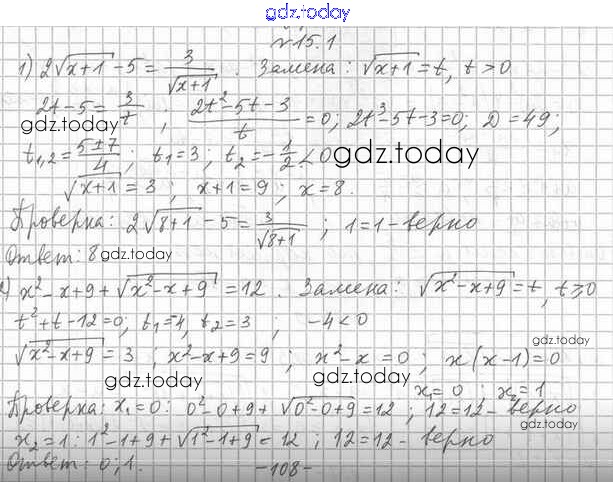 gdz.today
№15.1
1) 2√(x+1) - 5 = 3/√(x+1) . Замена: √(x+1) = t, t > 0
2t-5 = 3/t ; (2t²-5t-3)/t = 0; 2t³-5t-3=0; D = 49;
gdz.today
t₁,₂ = (5±7)/4 ; t₁=3; t₂ = -1/2 < 0 gdz.today
√(x+1) = 3 ; x+1=9 ; x=8.
Проверка: 2√(8+1) - 5 = 3/√(8+1) ; 1=1 - верно
Ответ: 8 gdz.today
2) x²-x+9+√(x²-x+9) = 12 . Замена: √(x²-x+9) = t, t ≥ 0
t²+t-12=0; t₁=4, t₂=3 , -4<0
gdz.today
√(x²-x+9) = 3 ; x²-x+9=9 ; x²-x=0 ; x(x-1)=0
gdz.today gdz.today
x₁=0 ; x₂=1
Проверка: x₁=0: 0²-0+9+√(0²-0+9)=12 ; 12=12- верно
gdz.today
x₂=1: 1²-1+9+√(1²-1+9)=12 ; 12=12- верно
Ответ: 0; 1.
-108-